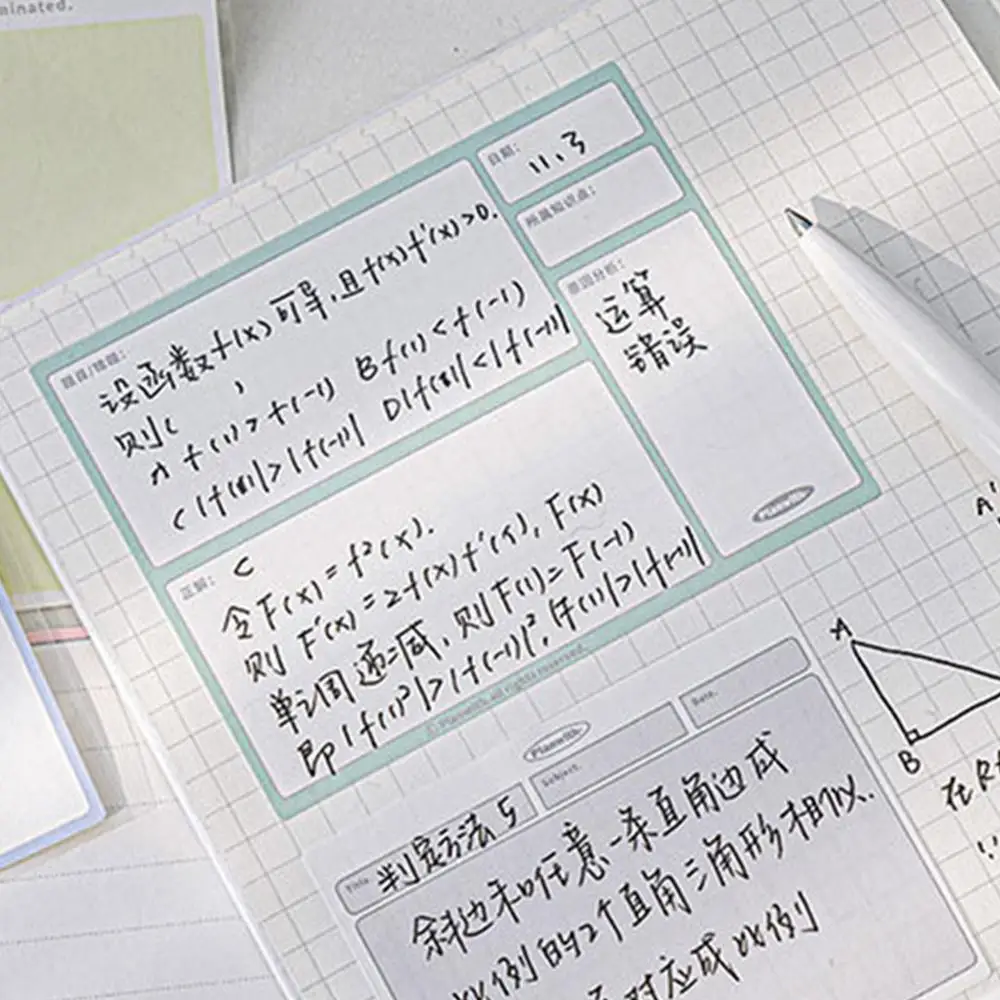 minated.
日期：
11、3
所属知识点：
原因分析：
运算
错误
Planwith·
题目/错题：
设函数f(x)可导，且f(x)f'(x)>0.
则(　　)
A f(1)>f(-1)　B f(1)<f(-1)
C |f(1)|>|f(-1)|　D |f(1)|<|f(-1)|
正解：
C
令F(x)=f²(x).
则 F'(x)=2f(x)f'(x)，F(x)
单调递减，则F(1)=F(-1)
即|f(1)²|>|f(-1)|²，
|f(1)|>|f(-1)|
© Planwith. All rights reserved.
Planwith·
Title.
判定方法5
Subject.
Date.
斜边和任意一条直角边成
比例的2个直角三角形相似.
对应成比例
A
B
A'
在R